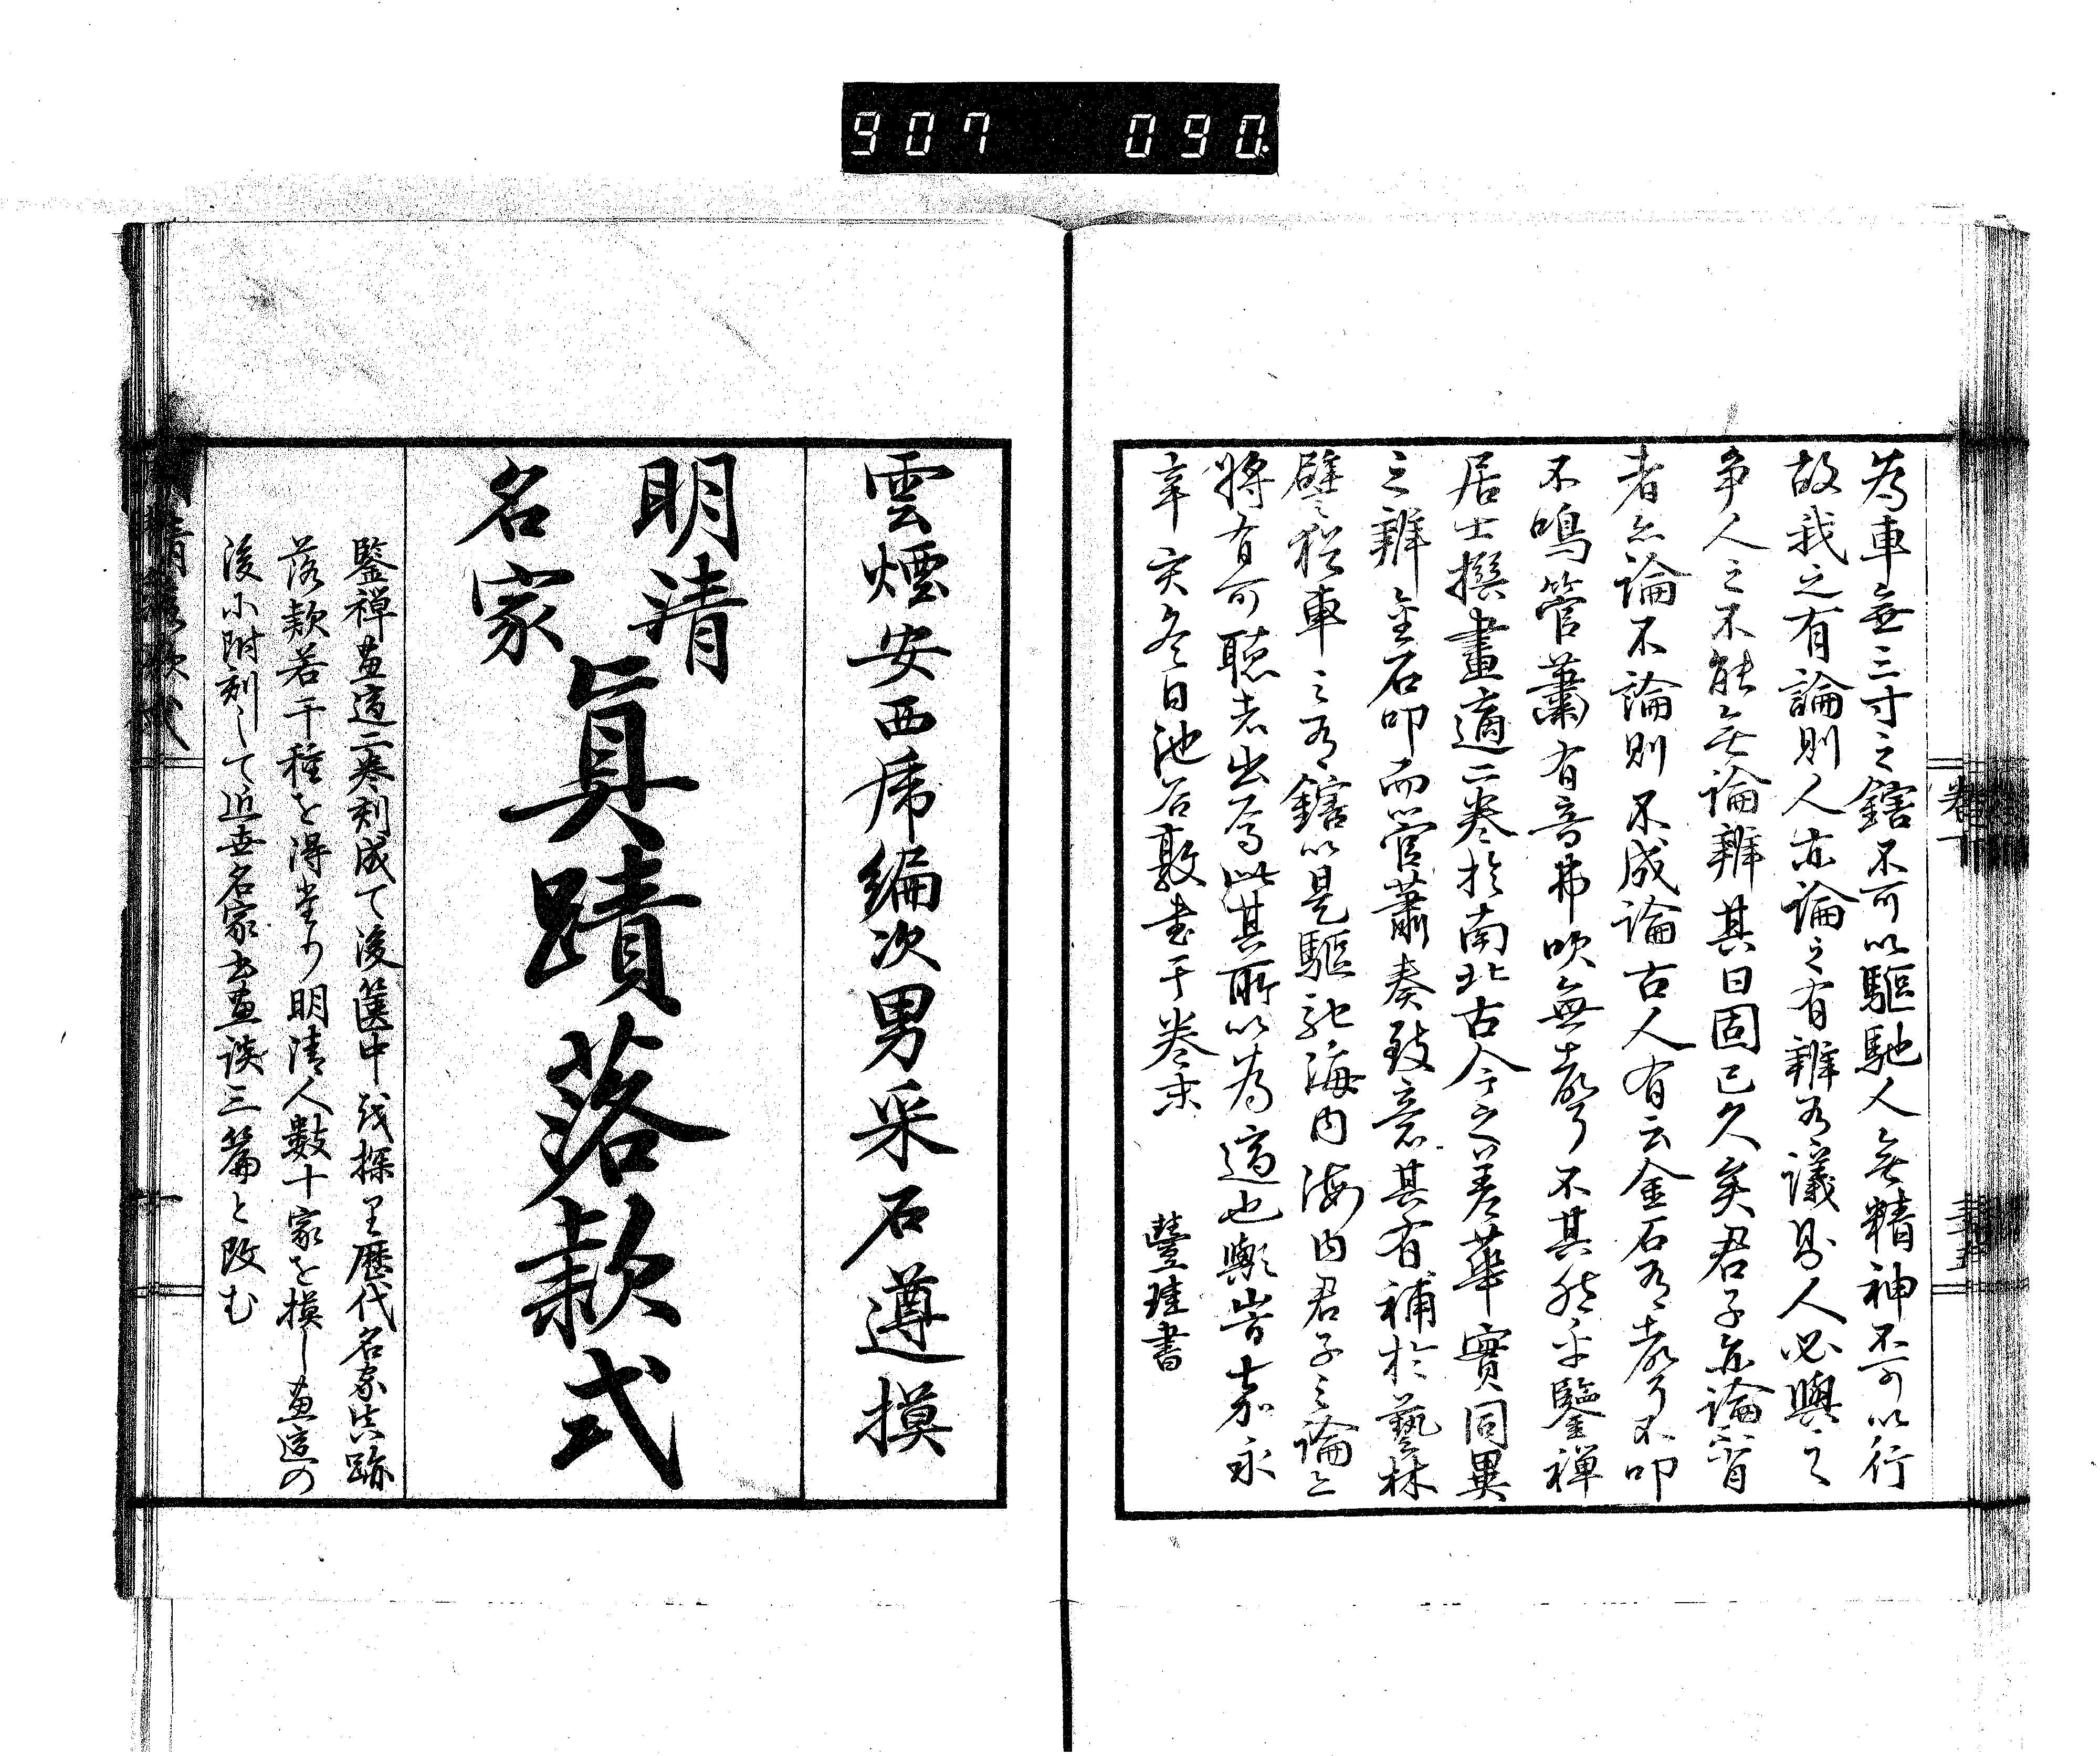 907 090
為車無三寸之鎋不可以驅馳人無精神不可以行
故我之有論則人亦論之有辨有議則人必與之
争人之不能無論辨其日固已久矣君子亦論皆
者亦論不論則不成論古人有云金石有聲不叩
不鳴管蕭有音弗吹無聲不其然乎鑒禅
居士撰畫適二巻於南北古今之差華實同異
之辨金石叩而管蕭奏致意其有補於藝林
譬猶車之有鎋以是驅馳海内海内君子之論之
將有可聴者出焉此其所以為適也歟嘗嘉永
辛亥冬日池君敦書于巻末
豐珪書
巻下
雲煙安西於編次男采石遵摸
明清
名家
眞蹟落款式
鑒禅画適二巻刻成て後篋中或探り歴代名家真跡
落款若干種を得堂り明清人數十家を摸し画適の
後小附刻して近世名家書画談三篇と改む
明清落款式
十